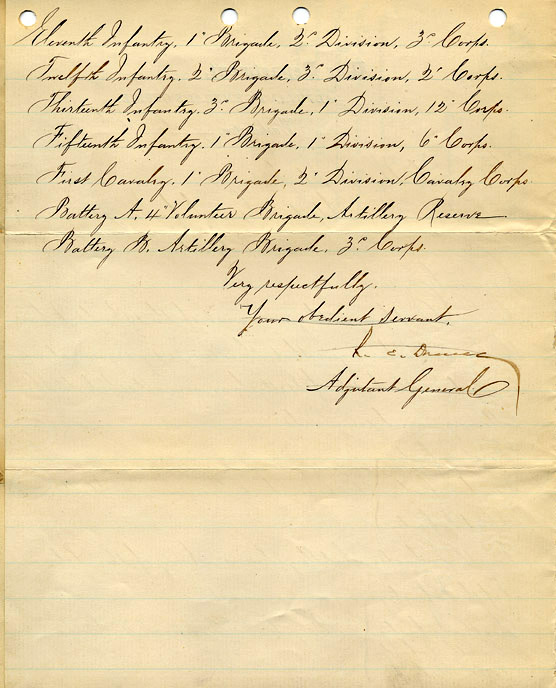 Eleventh Infantry, 1st Brigade, 2d Division, 3d Corps.
Twelfth Infantry, 2d Brigade, 3d Division, 2d Corps.
Thirteenth Infantry, 3d Brigade, 1st Division, 12th Corps.
Fifteenth Infantry, 1st Brigade, 1st Division, 6th Corps.
First Cavalry, 1st Brigade, 2d Division, Cavalry Corps
Battery A, 4th Volunteer Brigade, Artillery Reserve
Battery B, Artillery Brigade, 3d Corps.
Very respectfully,
Your obedient servant,
R. C. Drum
Adjutant General